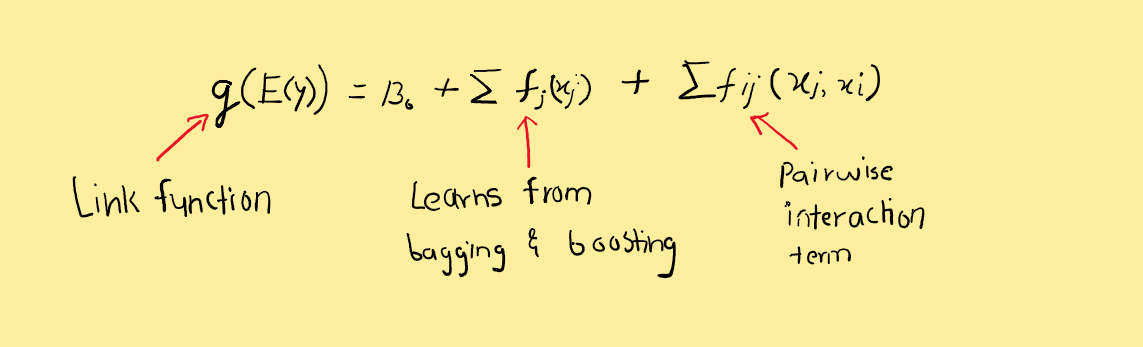 g(E(y)) = β₀ + Σ fⱼ(xⱼ) + Σ fᵢⱼ(xⱼ, xᵢ)
Link function
Learns from
bagging & boosting
Pairwise
interaction
term